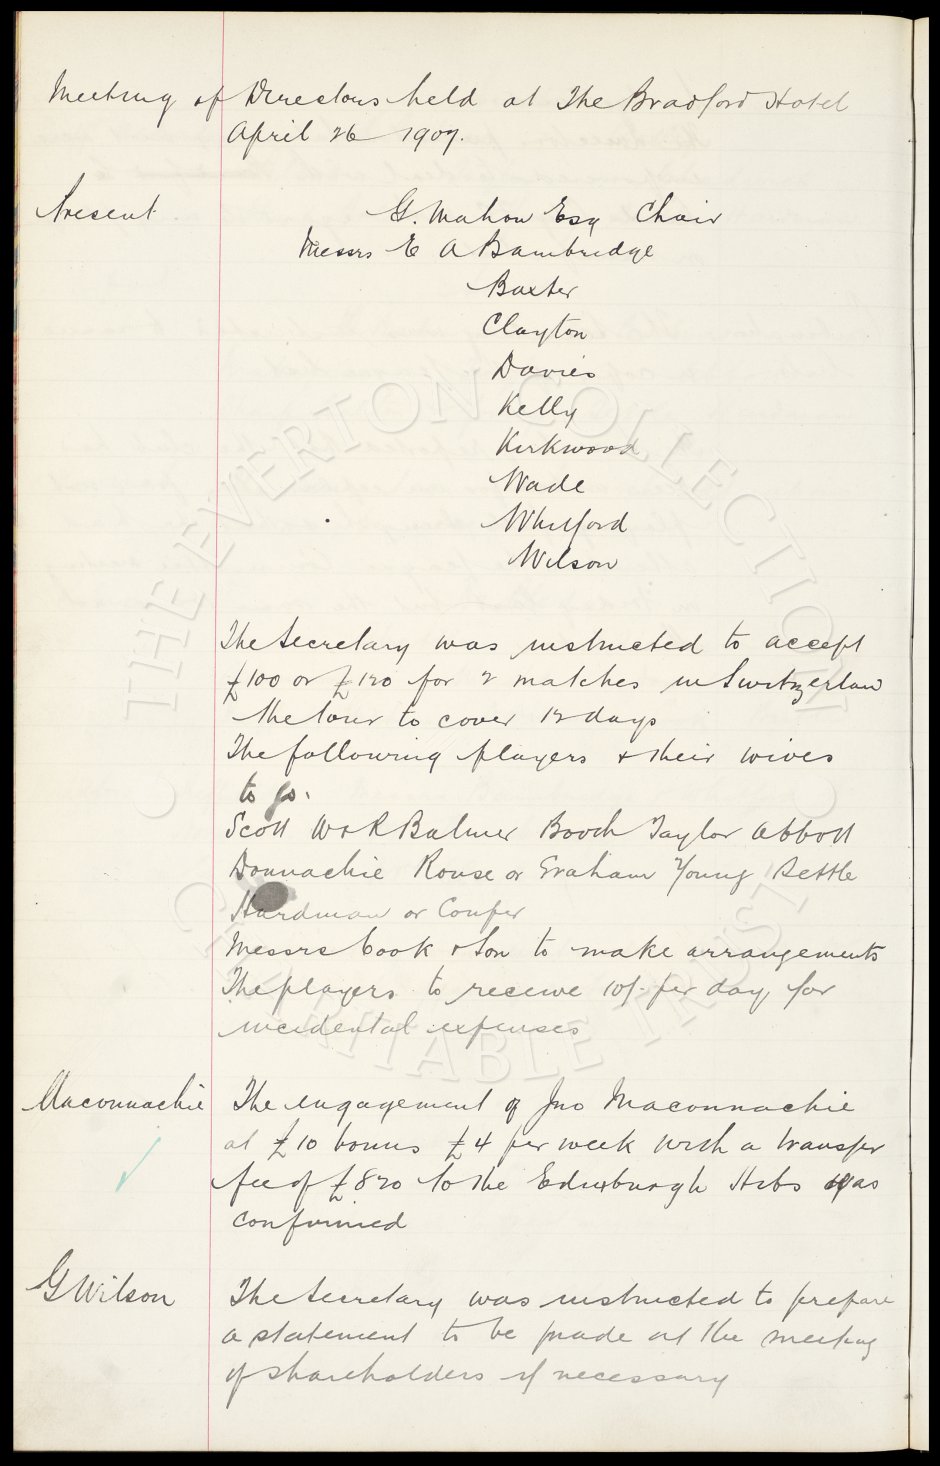 Meeting of Directors held at The Bradford Hotel
April 26 1907.
Present G. Mahon Esq Chair
Messrs E A Bambridge
Baxter
Clayton
Davies
Kelly
Kirkwood
Wade
Whitford
Wilson
The Secretary was instructed to accept
£100 or £120 for 2 matches in Switzerland
the tour to cover 12 days
The following players & their wives
to go.
Scott W & R Balmer Booth Taylor Abbott
Donnachie Rouse or Graham Young Settle
Hardman or Couper
Messrs Cook & Son to make arrangements
The players to receive 10/- per day for
incidental expenses
Maconnachie The engagement of Jno Maconnachie
at £10 bonus £4 per week with a transfer
fee of £820 to the Edinburgh Hibs was
confirmed
G Wilson The Secretary was instructed to prepare
a statement to be made at the meeting
of shareholders if necessary
© THE EVERTON COLLECTION CHARITABLE TRUST